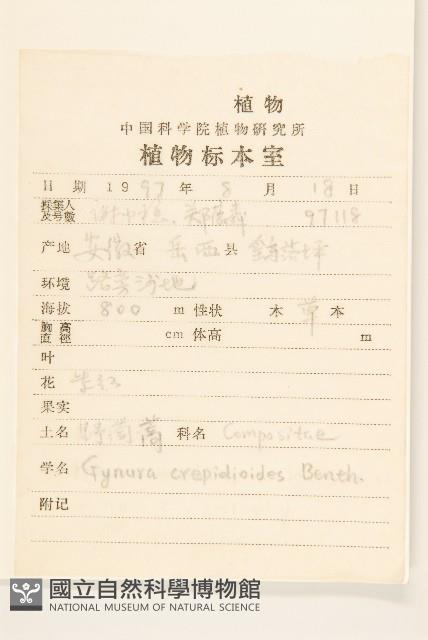 植物
中国科学院植物研究所
植物标本室
日期 1997年 8月 18日
採集人及号數 谢中稳、郑 97118
产地 安徽省 岳西县 坪
环境 路旁沙地
海拔 800 m 性状 木 草 本
胸高直徑 cm 体高 m
叶
花 紫红
果实
土名 野茼蒿 科名 Compositae
学名 Gynura crepidioides Benth.
附记
國立自然科學博物館
NATIONAL MUSEUM OF NATURAL SCIENCE